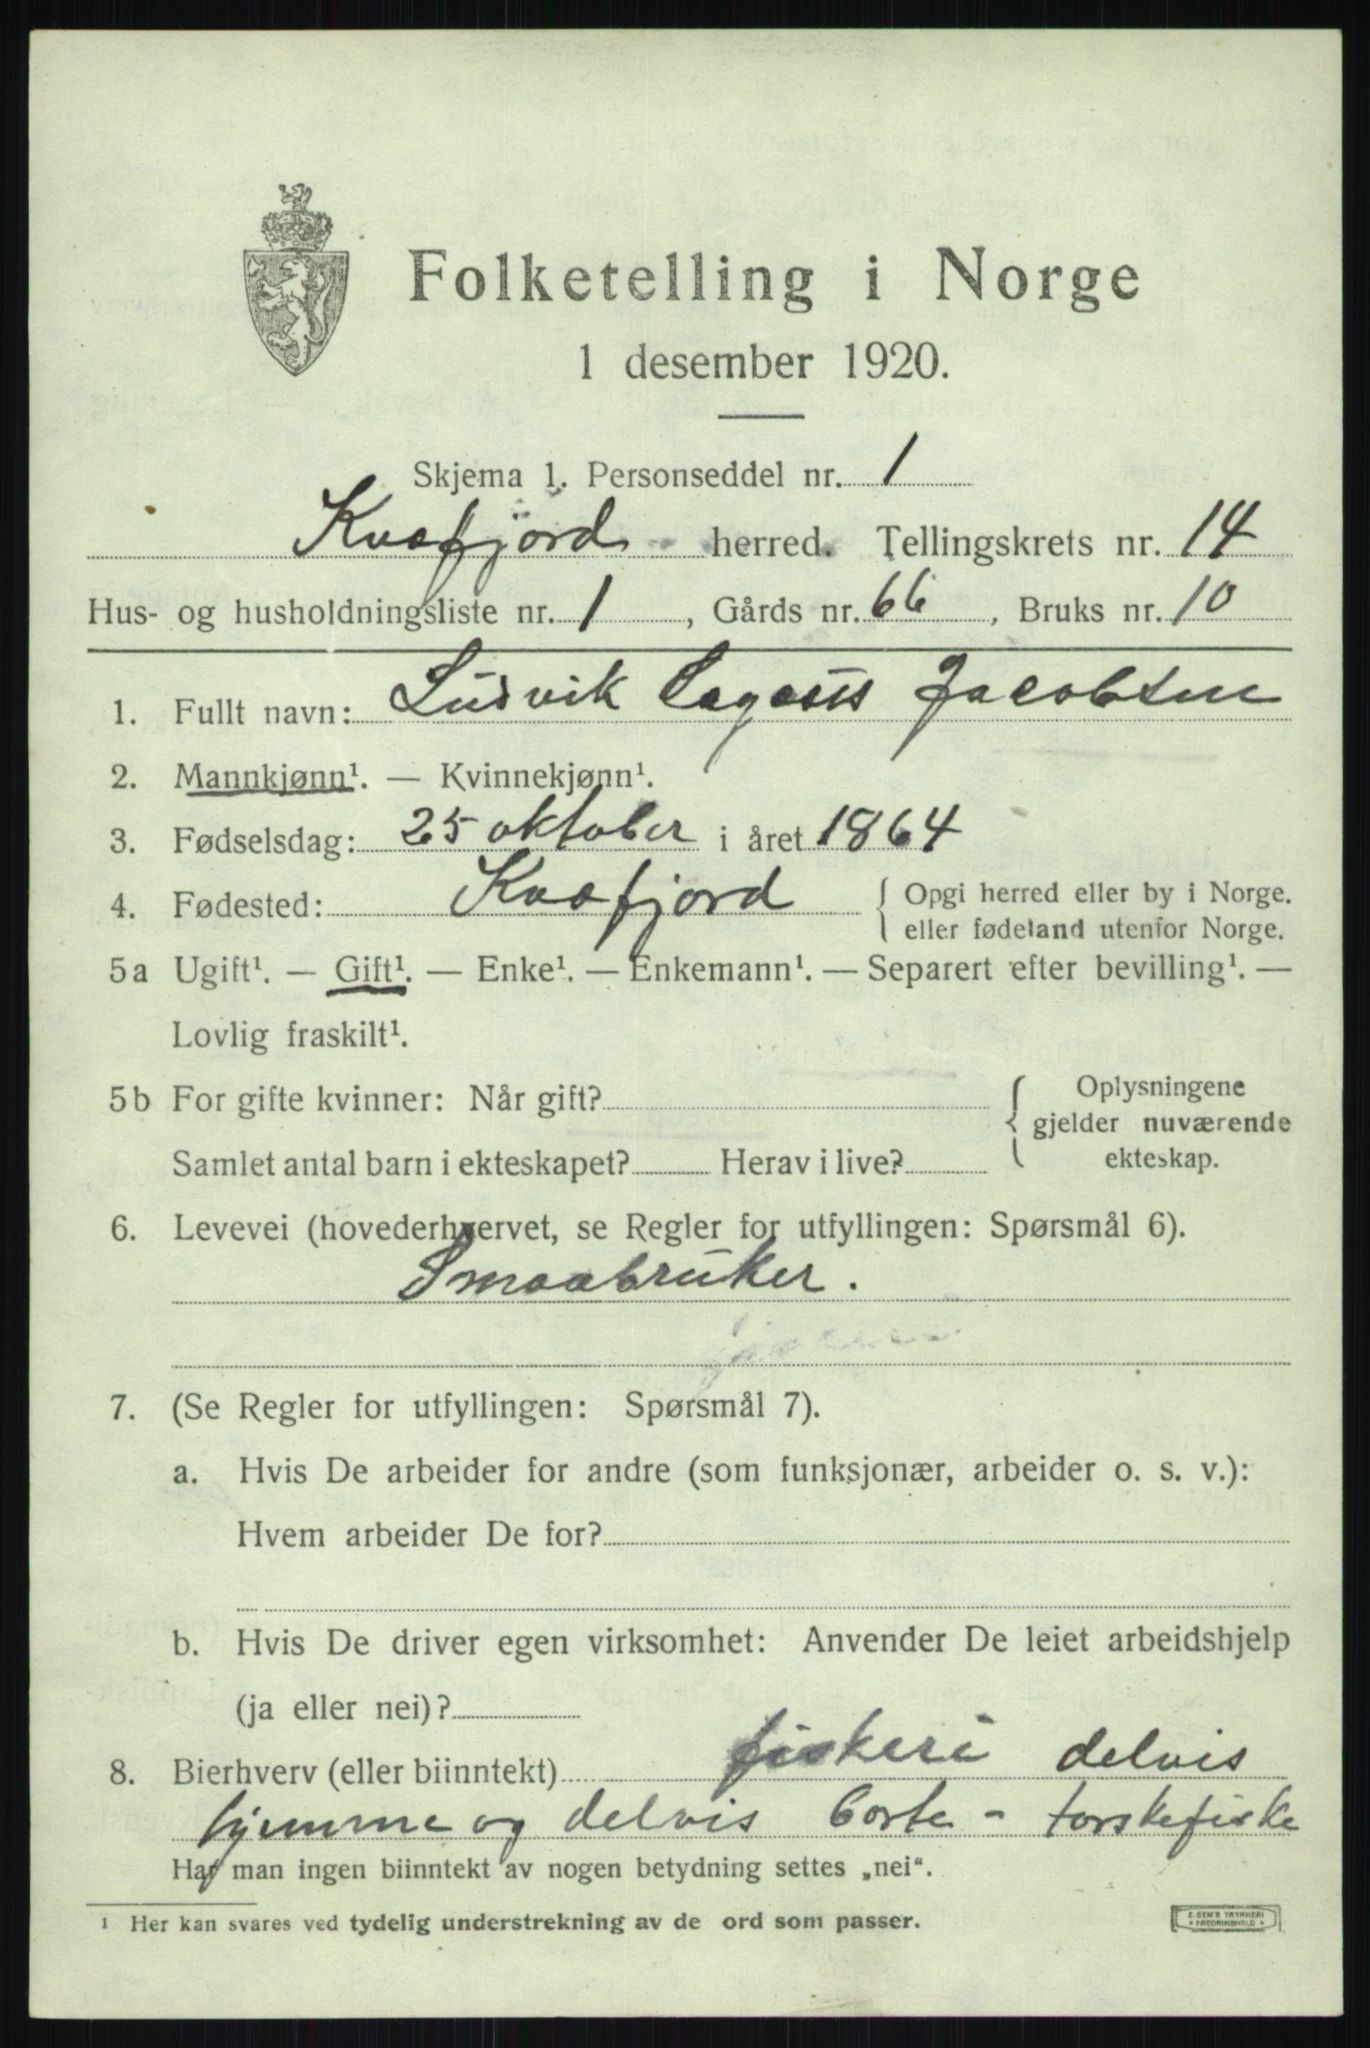 Folketelling i Norge
1 desember 1920.
Skjema 1. Personseddel nr. 1
Kvæfjord herred. Tellingskrets nr. 14
Hus- og husholdningsliste nr. 1, Gårds nr. 66, Bruks nr. 10
1. Fullt navn: Ludvik Jacobsen
2. Mannkjønn¹. — Kvinnekjønn¹.
3. Fødselsdag: 25 oktober i året 1864
4. Fødested: Kvæfjord { Opgi herred eller by i Norge.
eller fødeland utenfor Norge.
5a Ugift¹. — Gift¹. — Enke¹. — Enkemann¹. — Separert efter bevilling¹. —
Lovlig fraskilt¹.
5b For gifte kvinner: Når gift? { Oplysningene
gjelder nuværende
Samlet antal barn i ekteskapet? Herav i live? ekteskap.
6. Levevei (hovederhvervet, se Regler for utfyllingen: Spørsmål 6).
Smaabruker.
7. (Se Regler for utfyllingen: Spørsmål 7).
a. Hvis De arbeider for andre (som funksjonær, arbeider o. s. v.):
Hvem arbeider De for?
b. Hvis De driver egen virksomhet: Anvender De leiet arbeidshjelp
(ja eller nei)?
8. Bierhverv (eller biinntekt) fiskeri delvis
hjemme og delvis borte - torskefiske
Har man ingen biinntekt av nogen betydning settes „nei“.
¹ Her kan svares ved tydelig understrekning av de ord som passer.
E. SEM'S TRYKKERI
* FREDRIKSHALD *